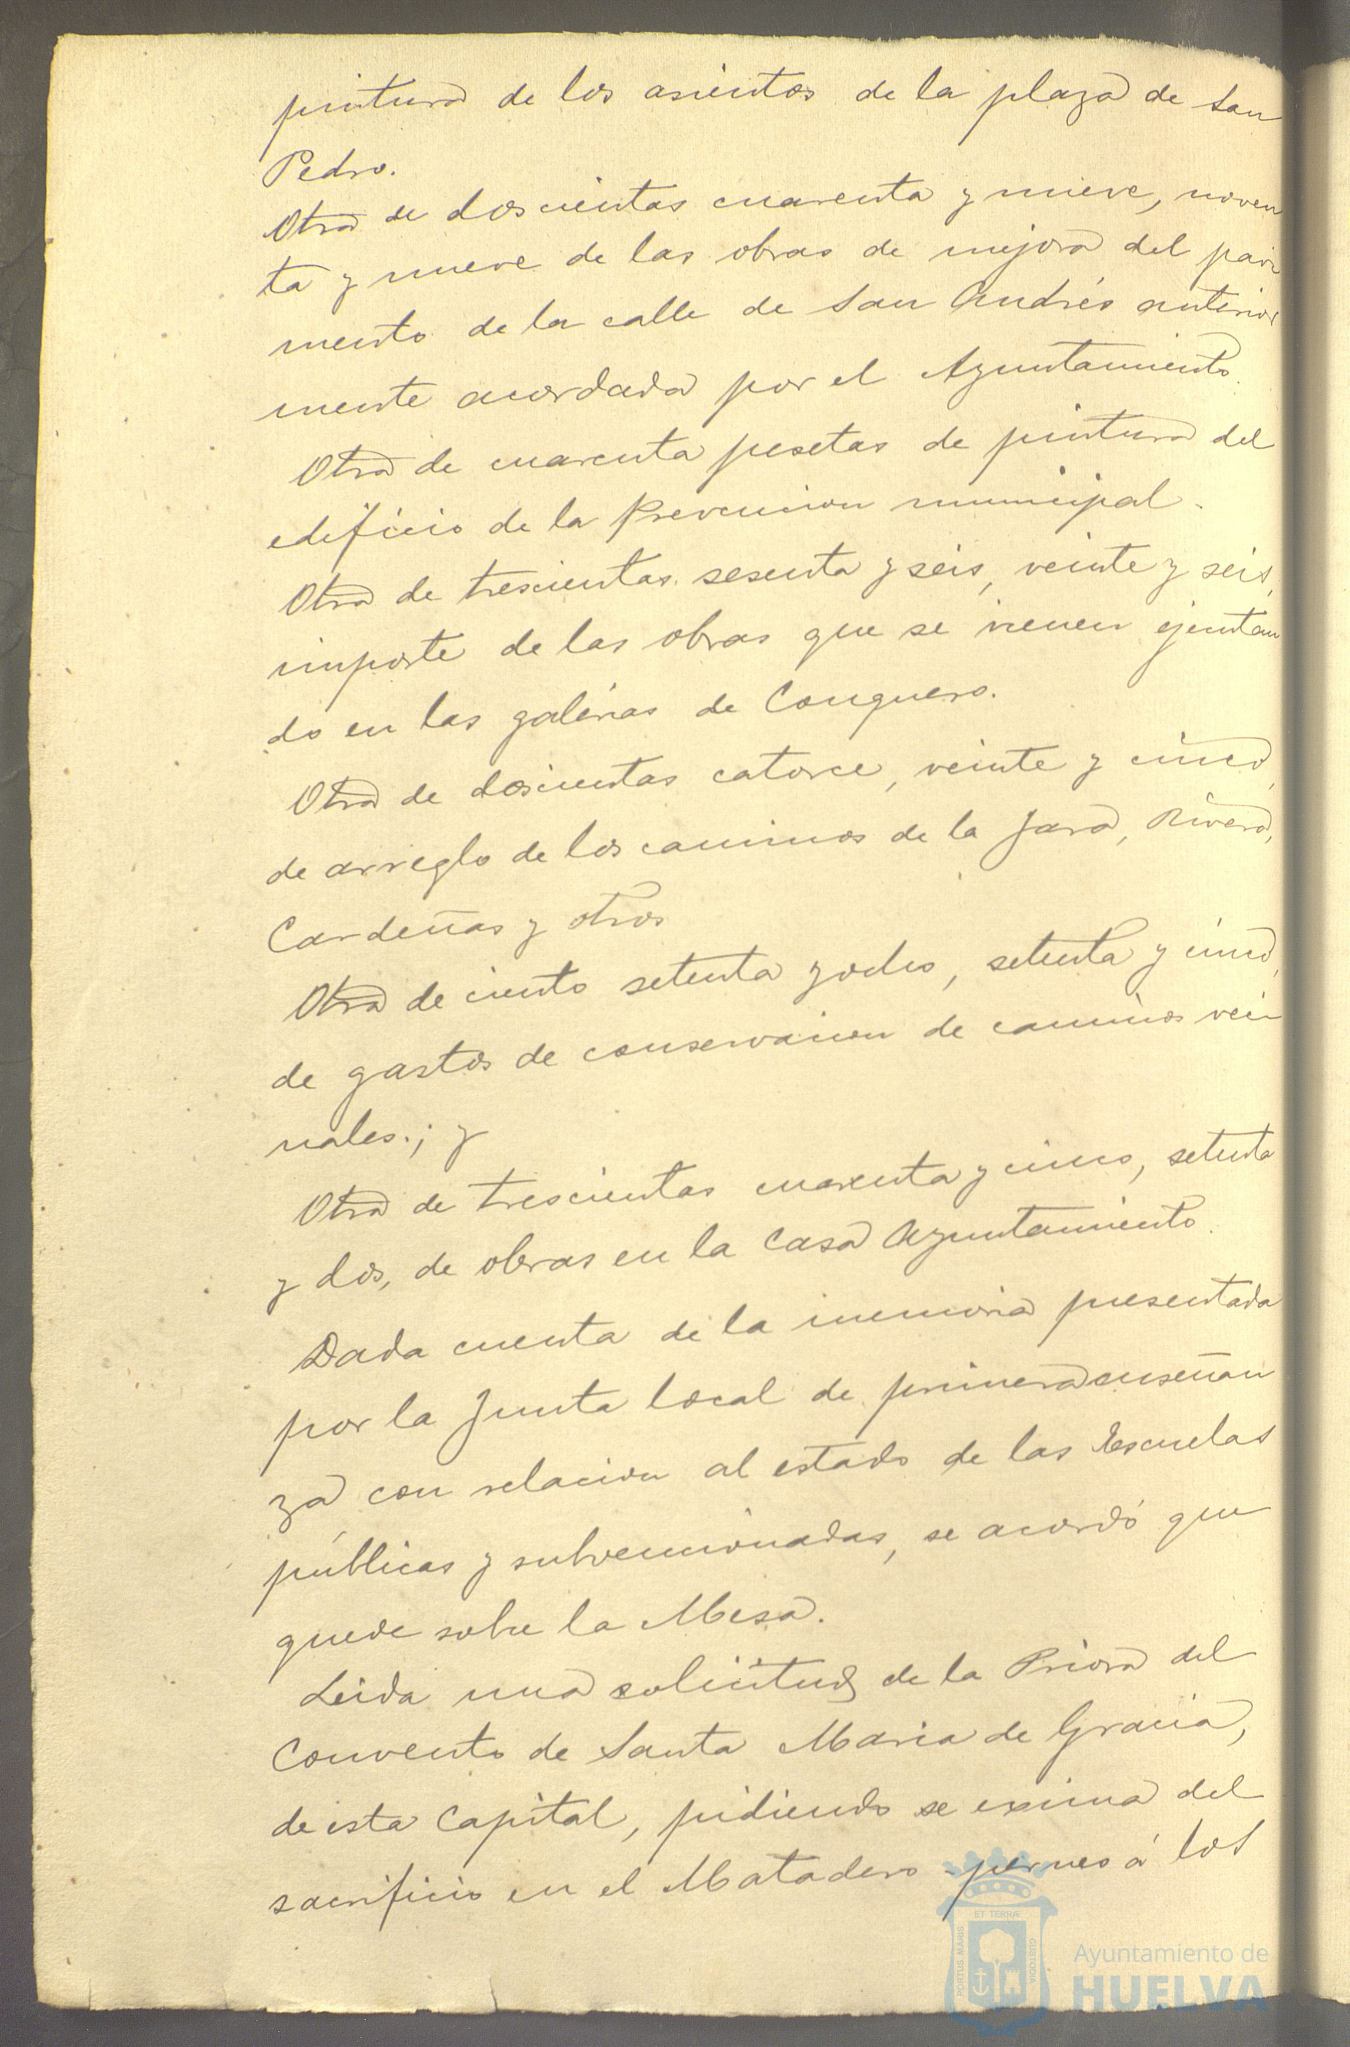 pintura de los asientos de la plaza de San
Pedro.
Otra de doscientas cuarenta y nueve, noven
ta y nueve de las obras de mejora del pavi
mento de la calle de San Andrés anterior
mente acordada por el Ayuntamiento.
Otra de cuarenta pesetas de pintura del
edificio de la Prevencion municipal.
Otra de trescientas sesenta y seis, veinte y seis,
importe de las obras que se vienen ejecutan
do en las galerias de Conquero.
Otra de doscientas catorce, veinte y cinco,
de arreglo de los caminos de la Jara, Rivera,
Cardeñas y otros
Otra de ciento setenta y ocho, setenta y cinco,
de gastos de conservacion de caminos veci
nales.; y
Otra de trescientas cuarenta y cinco, setenta
y dos, de obras en la Casa Ayuntamiento.
Dada cuenta de la memoria presentada
por la Junta local de primera enseñan
za con relacion al estado de las Escuelas
públicas y subvencionadas, se acordó que
quede sobre la Mesa.
Leida una solicitud de la Priora del
Convento de Santa Maria de Gracia,
de esta Capital, pidiendo se exima del
sacrificio en el Matadero á los
PORTUS MARIS
ET TERRÆ
CUSTODIA
Ayuntamiento de
HUELVA